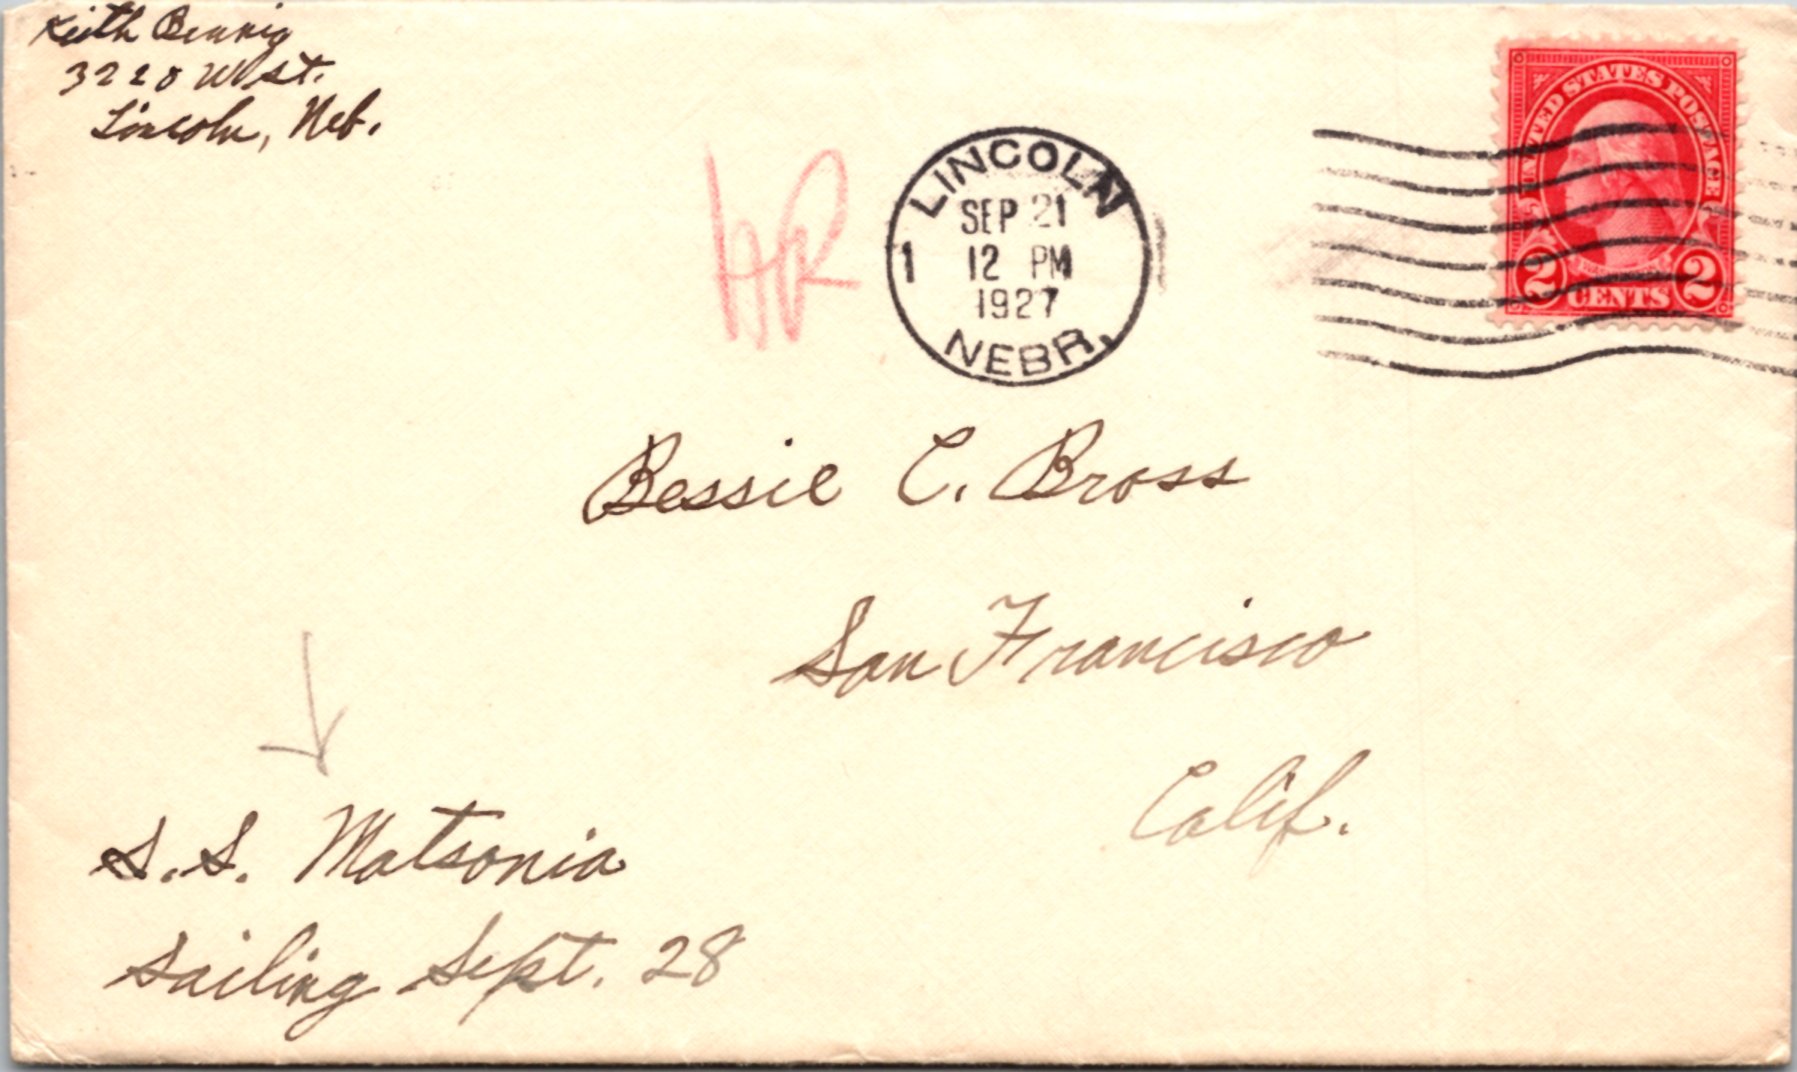 Keith Bennig
3220 W St.
Lincoln, Neb.
HR
LINCOLN
SEP 21
1 12 PM
1927
NEBR.
UNITED STATES POSTAGE
2 CENTS 2
Bessie C. Bross
San Francisco
Calif.
S.S. Matsonia
Sailing Sept. 28